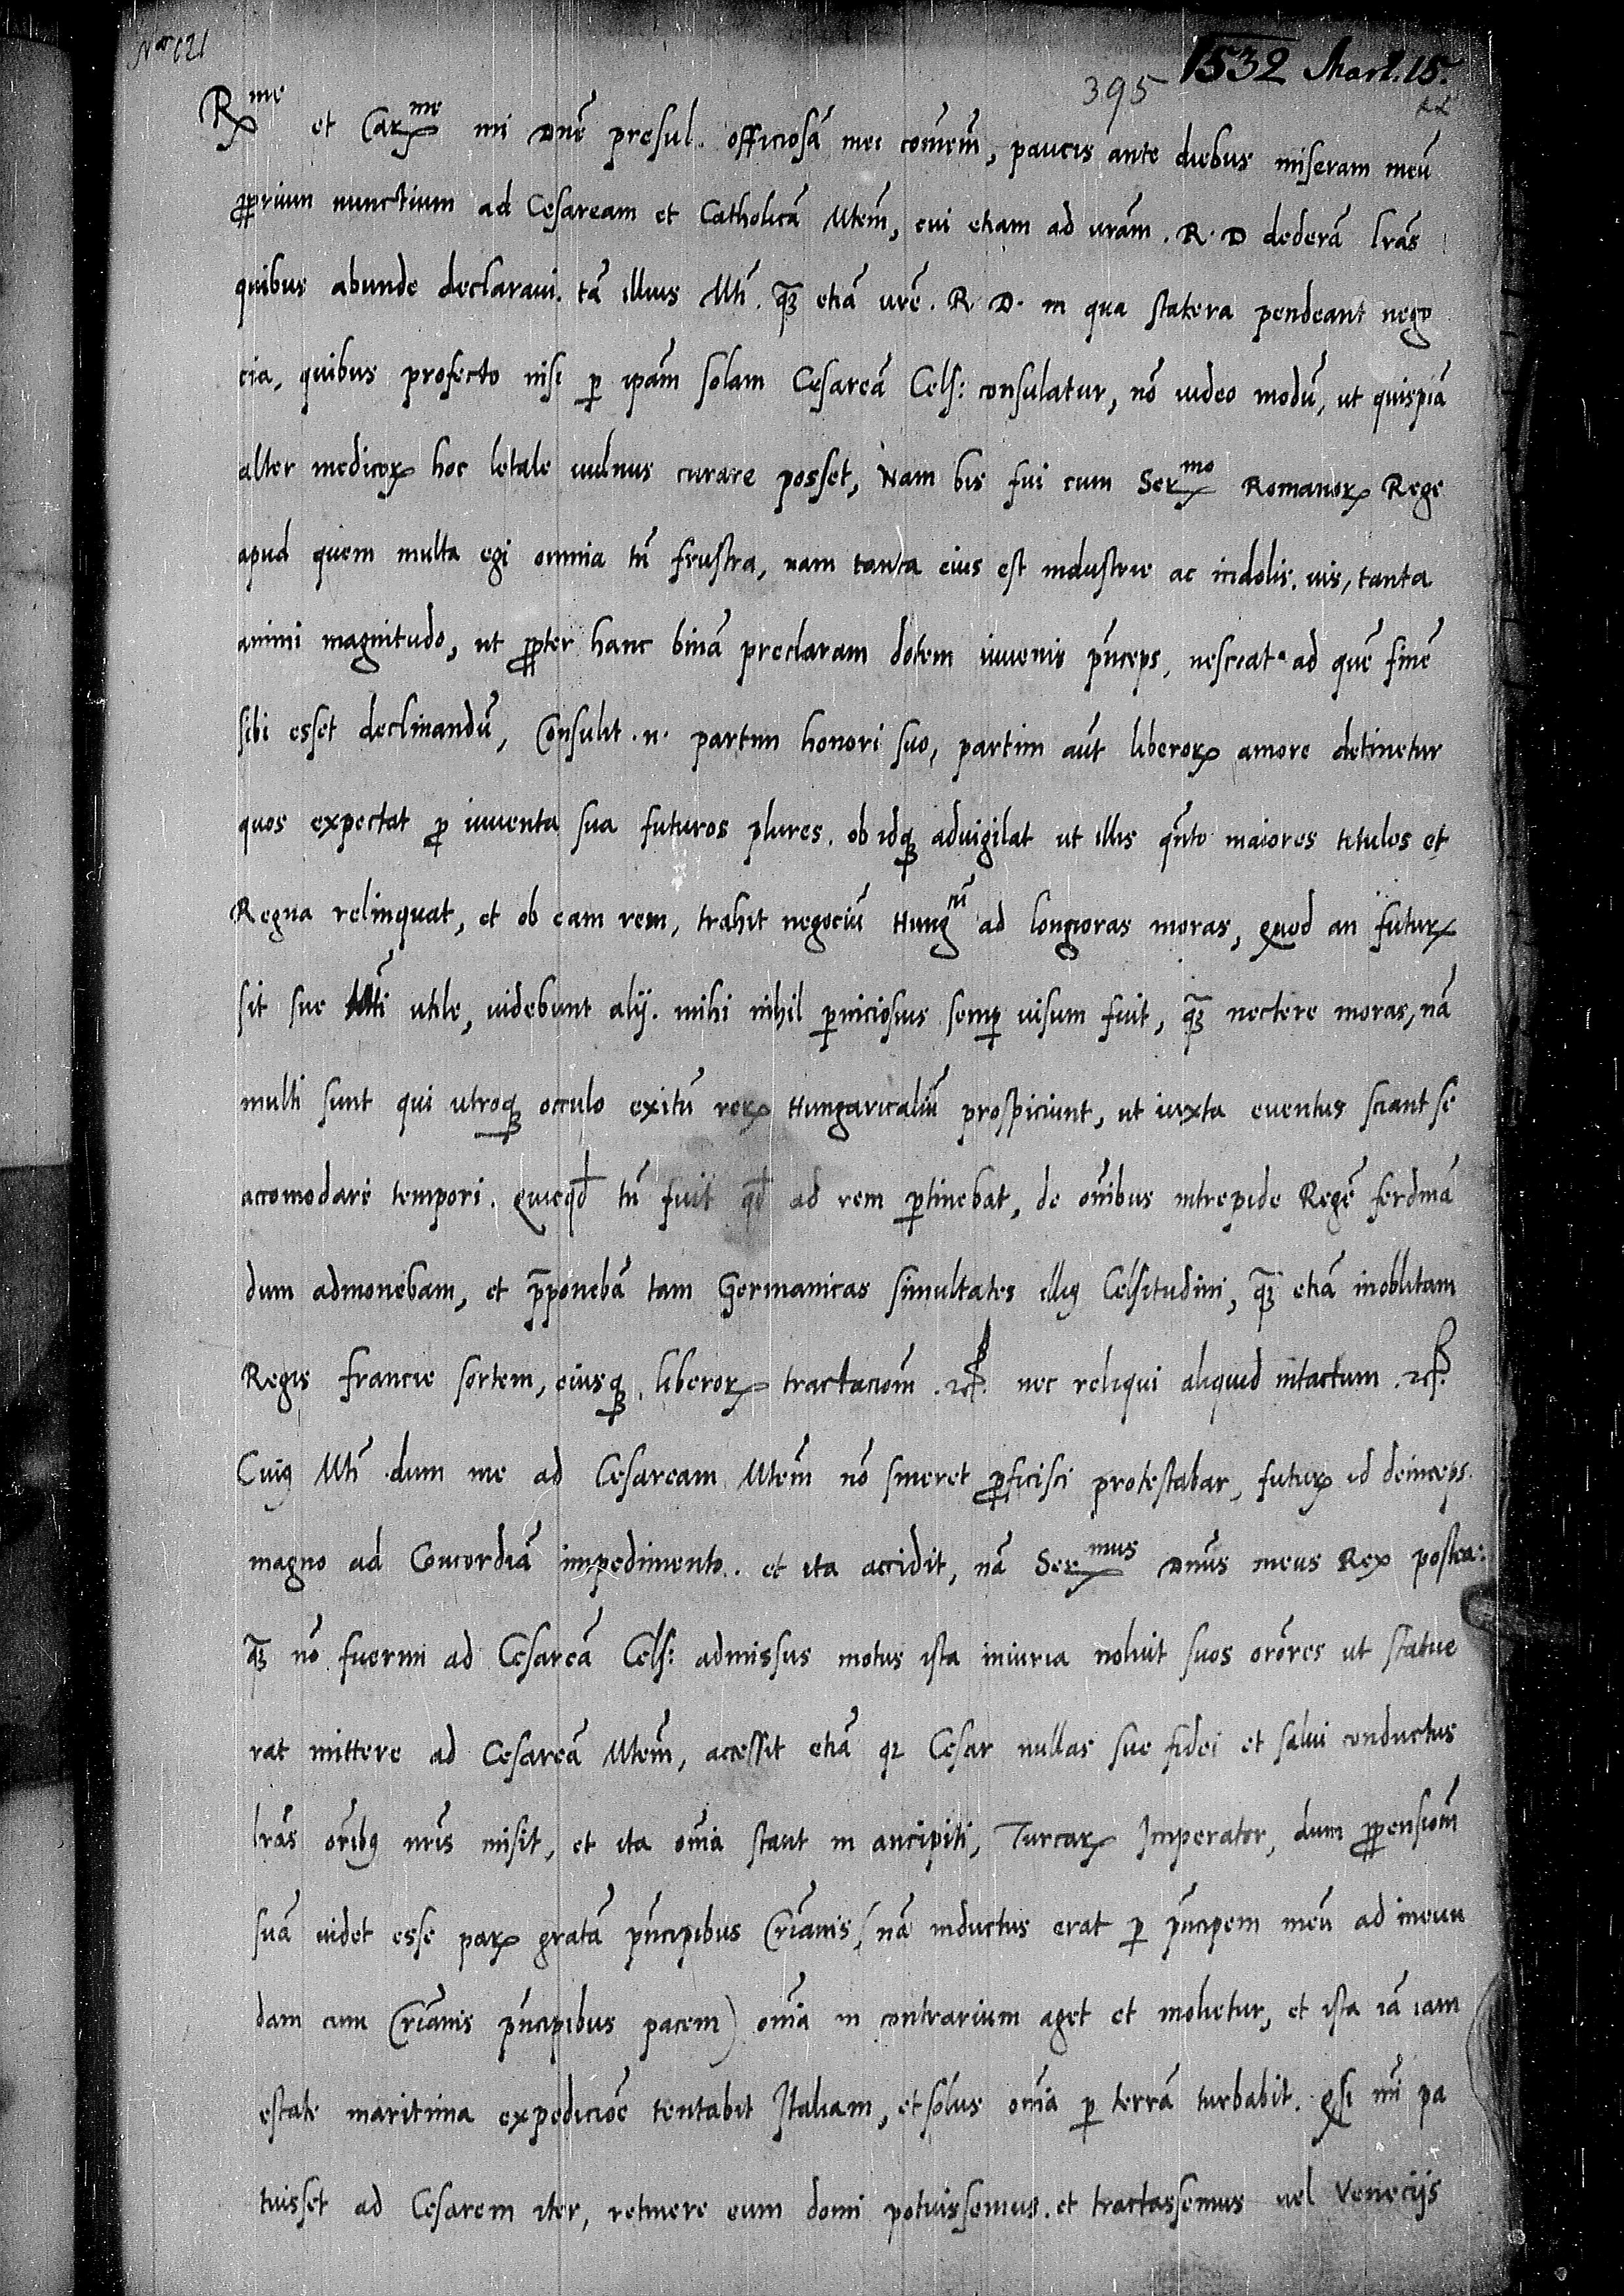 1532 Mart. 15.
395
Rme et Carme mi Dne presul. officiosā mei comēm, paucis ante diebus miseram meū
pprium nunctium ad Cesaream et Catholicā Mtem, cui etiam ad vram. R. D dederā lrās
quibus abunde declaravi. tā illius Mti. q̄ʒ etiā vrē. R. D. in qua statera pendeant nego
cia, quibus profecto nisi p ipam solam Cesareā Cels: consulatur, nō video modū, ut quispiā
alter medicoꝝ hoc letale vulnus curare posset, Nam bis fui cum Sermo Romanoꝝ Rege
apud quem multa egi omnia tn̄ frustra, nam tanta eius est industrie ac indolis. vis, tanta
animi magnitudo, ut ppter hanc binā preclaram dotem iuvenis pn̄ceps, nesciat ad quē finē
sibi esset declinandū, Consulit .n. partim honori suo, partim aūt liberoꝝ amore detinetur
quos expectat p iuventa sua futuros plures. ob idqʒ advigilat ut illis qn̄to maiores titulos et
Regna relinquat, et ob eam rem, trahit negociū Hungcū ad longioras moras, quod an futuꝝ
sit sue Mti utile, videbunt alij. mihi nihil pniciosius semp visum fuit, q̄ʒ nectere moras, nā
multi sunt qui utroqʒ occulo exitū reꝝ Hungaricaliū prospiciunt, ut iuxta eventus sciant se
accomodare tempori. Quicqd tn̄ fuit qd ad rem ptinebat, de oībus intrepide Regē ferdinā
dum admonebam, et pponebā tam Germanicas simultates illiꝯ Celsitudini, q̄ʒ etiā inoblitam
Regis francie sortem, eiusqʒ liberoꝝ tractaciom̄ .etc. nec reliqui aliquid intactum .etc.
Cuiꝯ Mti dum me ad Cesaream Mtem nō sineret pficisci protestabar, futuꝝ id deinceps
magno ad Concordiā impedimento. et ita accidit, nā Sermus Dnūs meus Rex postea:
q̄ʒ nō fuerim ad Cesareā Cels: admissus motus ista iniuria noluit suos orōres ut statue
rat mittere ad Cesareā Mtem, accessit etiā qꝛ Cesar nullas sue fidei et salvi conductus
lrās orībꝯ nrīs misit, et ita omīa stant in ancipiti, Turcaꝝ Imperator, dum ppensiom̄
suā videt esse paꝝ gratā pn̄cipibus Crīanis, (nā inductus erat p pn̄cipem meū ad ineun
dam cum Crīanis pn̄cipibus pacem) omīa in contrarium aget et molietur, et ista iā iam
estate maritima expediciōe tentabit Italiam, et solus omīa p terrā turbabit. Qsi mī pa
tuisset ad Cesarem iter, retinere eum domi potuissemus. et tractassemus vel Veneciis